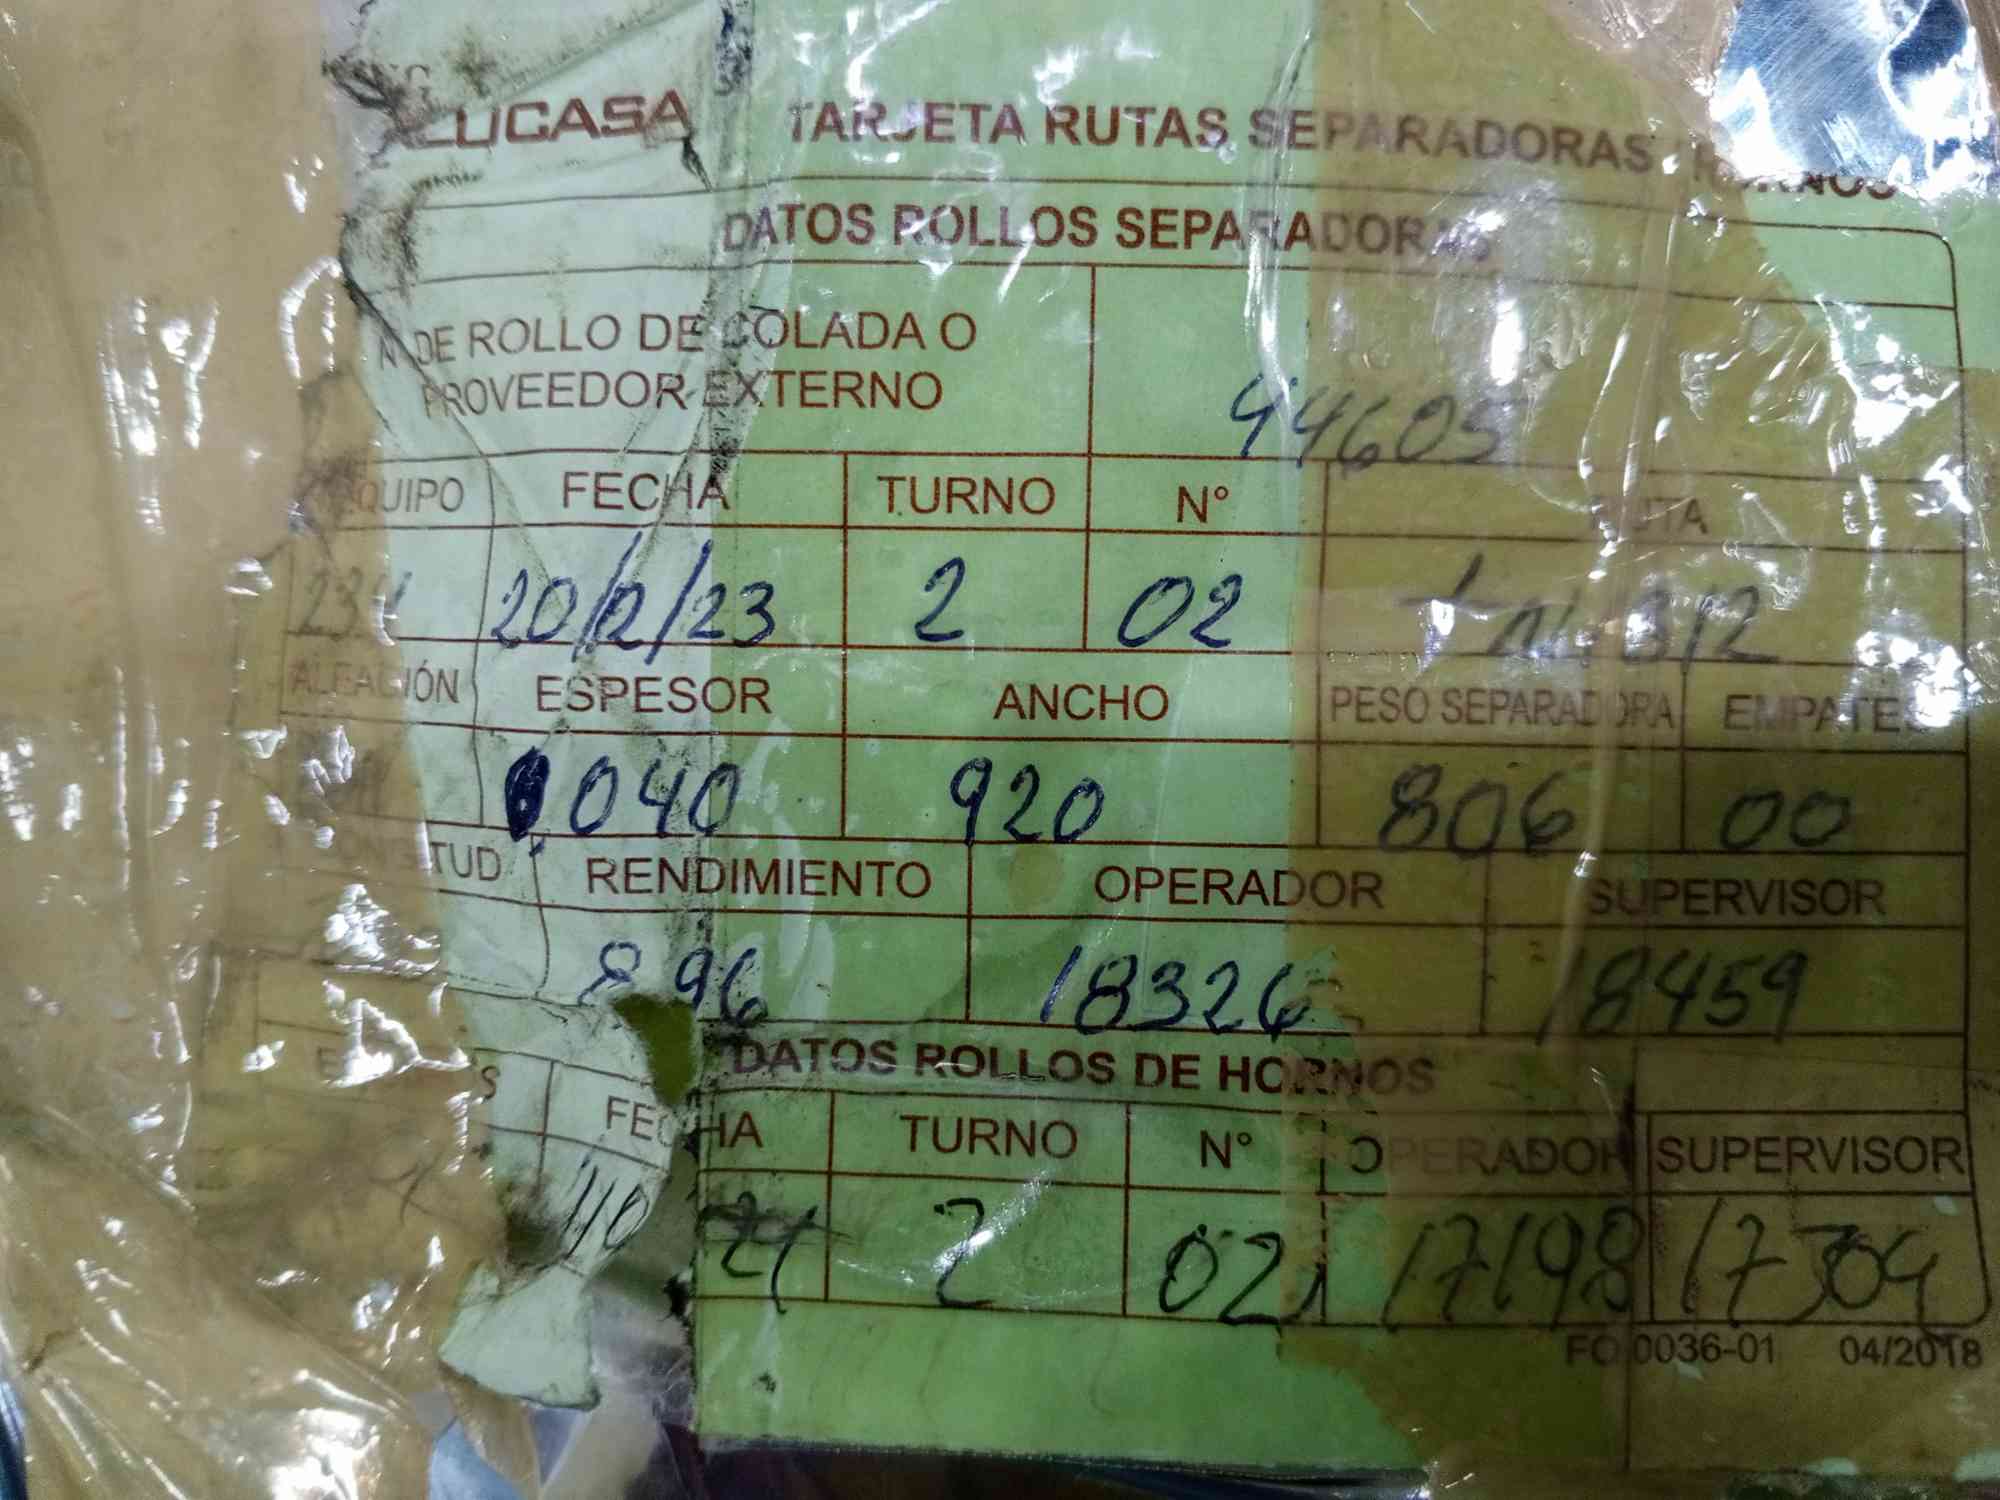 LUCASA TARJETA RUTAS SEPARADORAS HORNOS
DATOS ROLLOS SEPARADORAS
N° DE ROLLO DE COLADA O
PROVEEDOR EXTERNO
44605
EQUIPO FECHA TURNO N° RUTA
234 20/12/23 2 02
ALEACIÓN ESPESOR ANCHO PESO SEPARADORA EMPATES
040 920 806 00
LONGITUD RENDIMIENTO OPERADOR SUPERVISOR
896 18326 18459
DATOS ROLLOS DE HORNOS
FECHA TURNO N° OPERADOR SUPERVISOR
2 02 17198 17304
FO 0036-01 04/2018